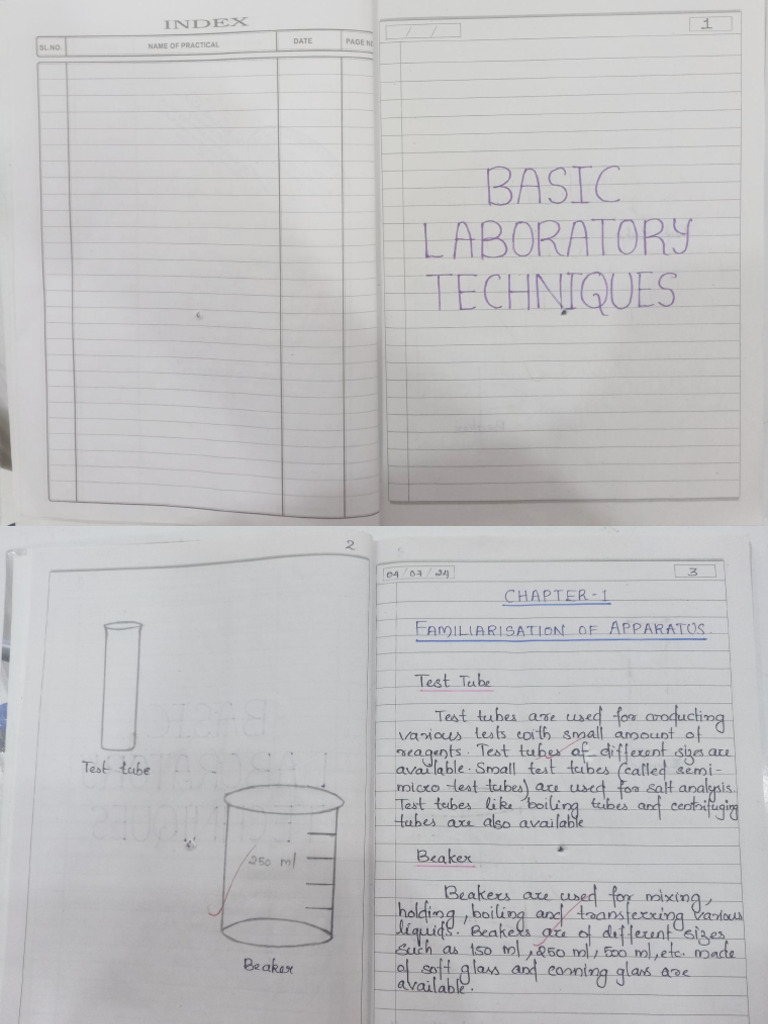 INDEX
SL.NO. NAME OF PRACTICAL DATE PAGE NO
/ /
1
BASIC
LABORATORY
TECHNIQUES
2
Test tube
250 ml
Beaker
04/07/24
3
CHAPTER-1
FAMILIARISATION OF APPARATUS.
Test Tube
Test tubes are used for conducting
various tests with small amount of
reagents. Test tubes of different sizes are
available. Small test tubes (called semi-
micro test tubes) are used for salt analysis.
Test tubes like boiling tubes and centrifuging
tubes are also available
Beaker
Beakers are used for mixing,
holding, boiling and transferring various
liquids. Beakers are of different sizes
such as 150 ml, 250 ml, 500 ml, etc. made
of soft glass and corning glass are
available.